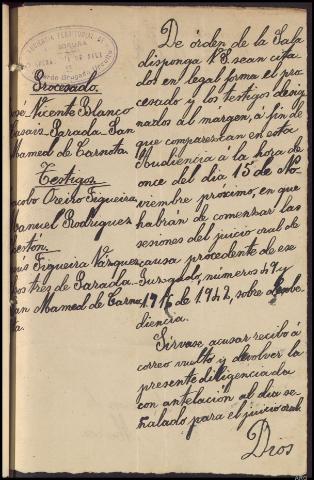 AUDIENCIA TERRITORIAL DE
CORUÑA
Procesado.
José Vicente Blanco
Casais Parada San
Mamed de Carnota
Testigos
Jacobo Oreiro Figueira,
Manuel Rodriguez
Lestón.
Luis Figueira Vázquez
los tres de Parada
San Mamed de Carno
ta.
De órden de la Sala
disponga V.S. sean cita
dos en legal forma el pro
cesado y los testigos desig
nados al márgen, a fin de
que comparezcan en esta
Audiencia á la hora de
once del dia 15 de No
viembre próximo, en que
habrán de comenzar las
sesiones del juicio oral de
causa procedente de ese
Juzgado, números 49 y
de 1942, sobre desobe
diencia.
Sírvase acusar recibo á
correo vuelto y devolver la
presente diligenciada
con antelación al dia se
ñalado para el juicio oral.
Dios